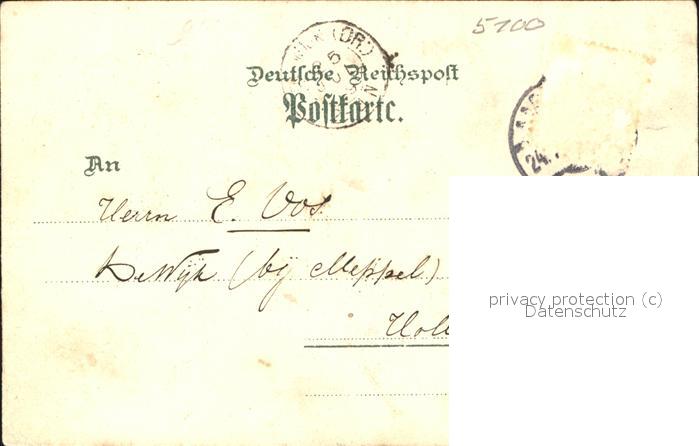 5100
Deutsche Reichspost
Postkarte.
An
Herrn E. Vos.
De Wijk (bij Meppel)
Holl
privacy protection (c)
Datenschutz